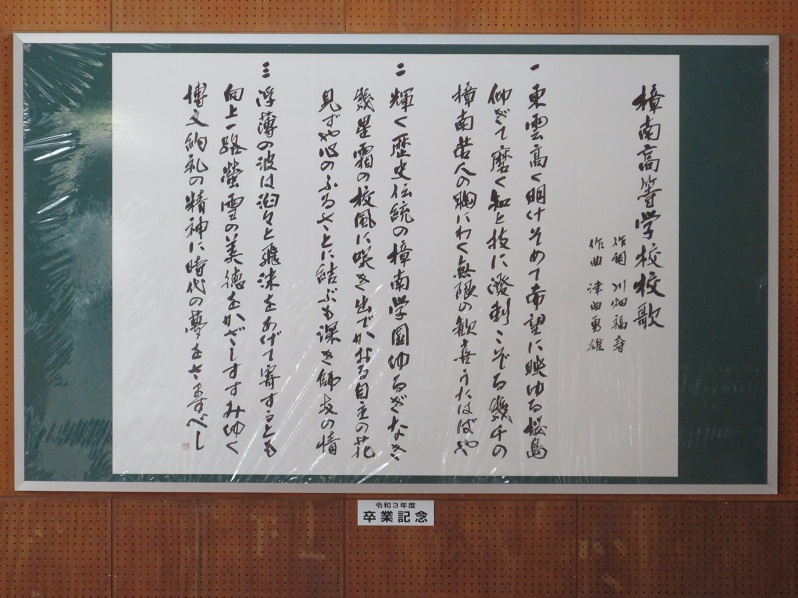 樟南高等学校校歌
作詞 川畑福寿
作曲 津曲勇雄
一 東雲高く明けそめて希望に映ゆる桜島
仰ぎて磨く知と技に溌剌こぞる幾千の
樟南若人の胸にわく無限の歓喜うたはばや
二 輝く歴史伝統の樟南学園ゆるぎなき
幾星霜の校風に咲き出でかおる自主の花
見ずや心のふるさとに結ぶも深き師友の情
三 浮薄の波は滔々と飛沫をあげて寄するとも
向上一路螢雪の美徳をかざしすすみゆく
博文約礼の精神に時代の夢をさますべし
令和3年度
卒業記念